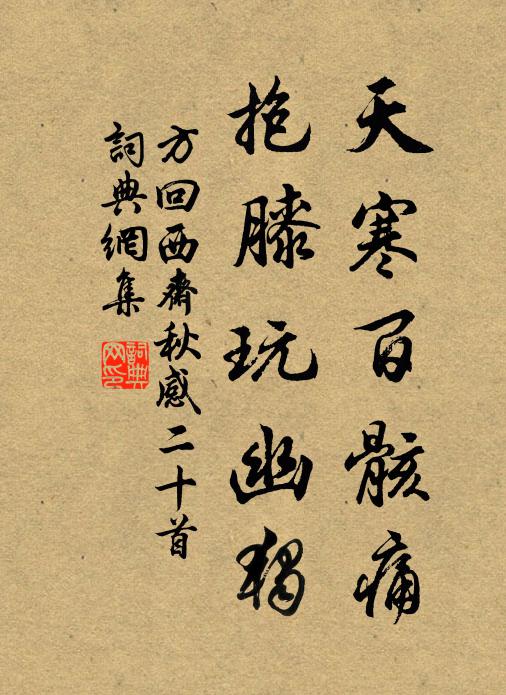 天寒百骸痛
抱膝玩幽獨
方回西齋秋感二十首
詞典網集
詞典網印